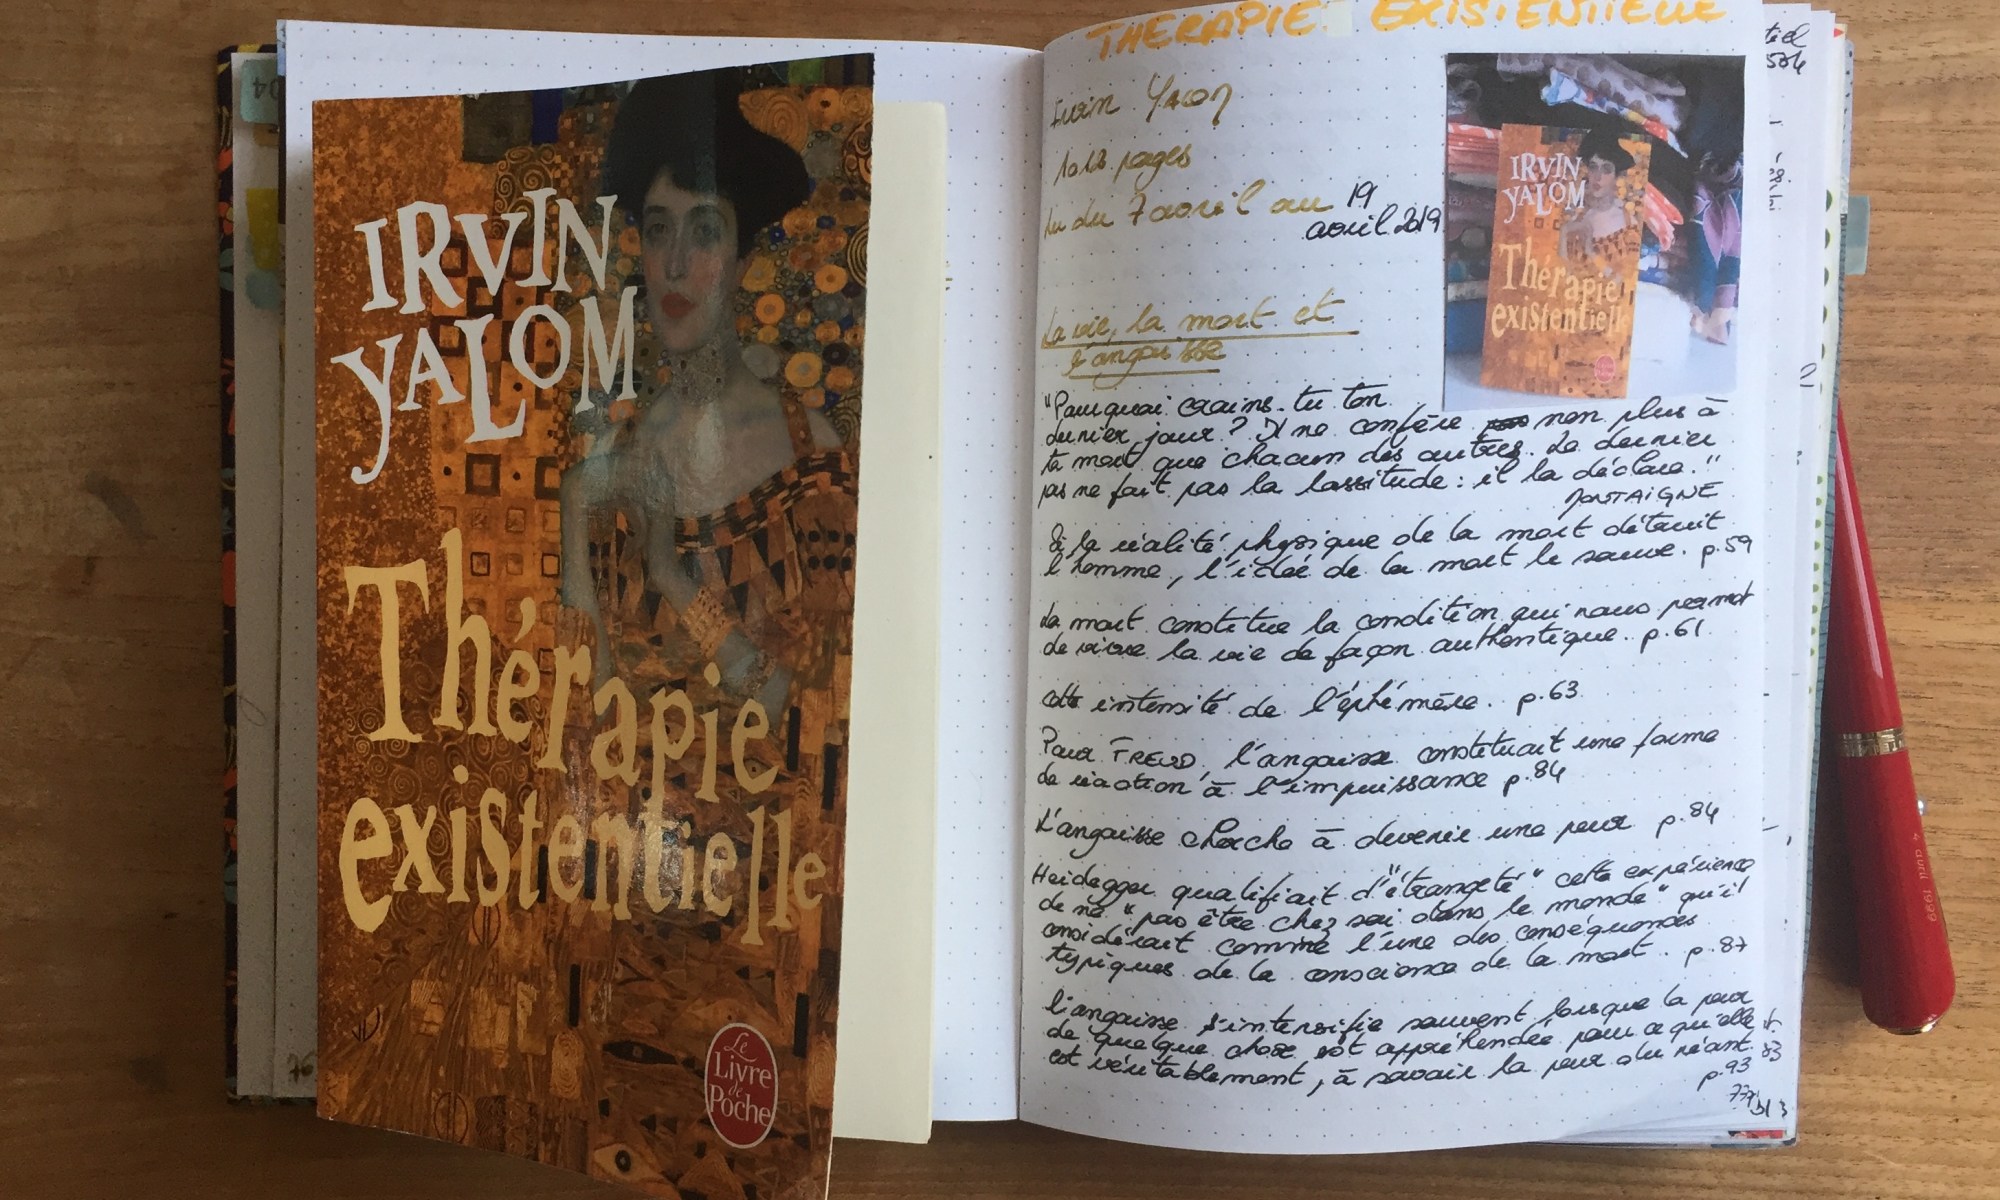 IRVIN
YALOM
Thérapie
existentielle
Le
Livre
de
Poche
THERAPIE EXISTENTIELLE
Irvin Yalom
1018 pages
Lu du 7 avril au 19
avril 2019
IRVIN
YALOM
Thérapie
existentielle
La vie, la mort et
l'angoisse
"Pourquoi crains-tu ton
dernier jour? Il ne confère non plus à
ta mort que chacun des autres. Le dernier
pas ne fait pas la lassitude: il la déclare."
MONTAIGNE
Si la réalité physique de la mort détruit
l'homme, l'idée de la mort le sauve. p.59
La mort constitue la condition qui nous permet
de vivre la vie de façon authentique. p.61
cette intensité de l'éphémère. p.63
Pour FREUD, l'angoisse constituait une forme
de réaction à l'impuissance p.84
L'angoisse cherche à devenir une peur p.84
Heidegger qualifiait d'"étrangeté" cette expérience
de ne "pas être chez soi dans le monde" qu'il
considérait comme l'une des conséquences
typiques de la conscience de la mort. p.87
l'angoisse s'intensifie souvent lorsque la peur
de quelque chose est appréhendée pour ce qu'elle
est véritablement, à savoir la peur du néant.
p.93
76